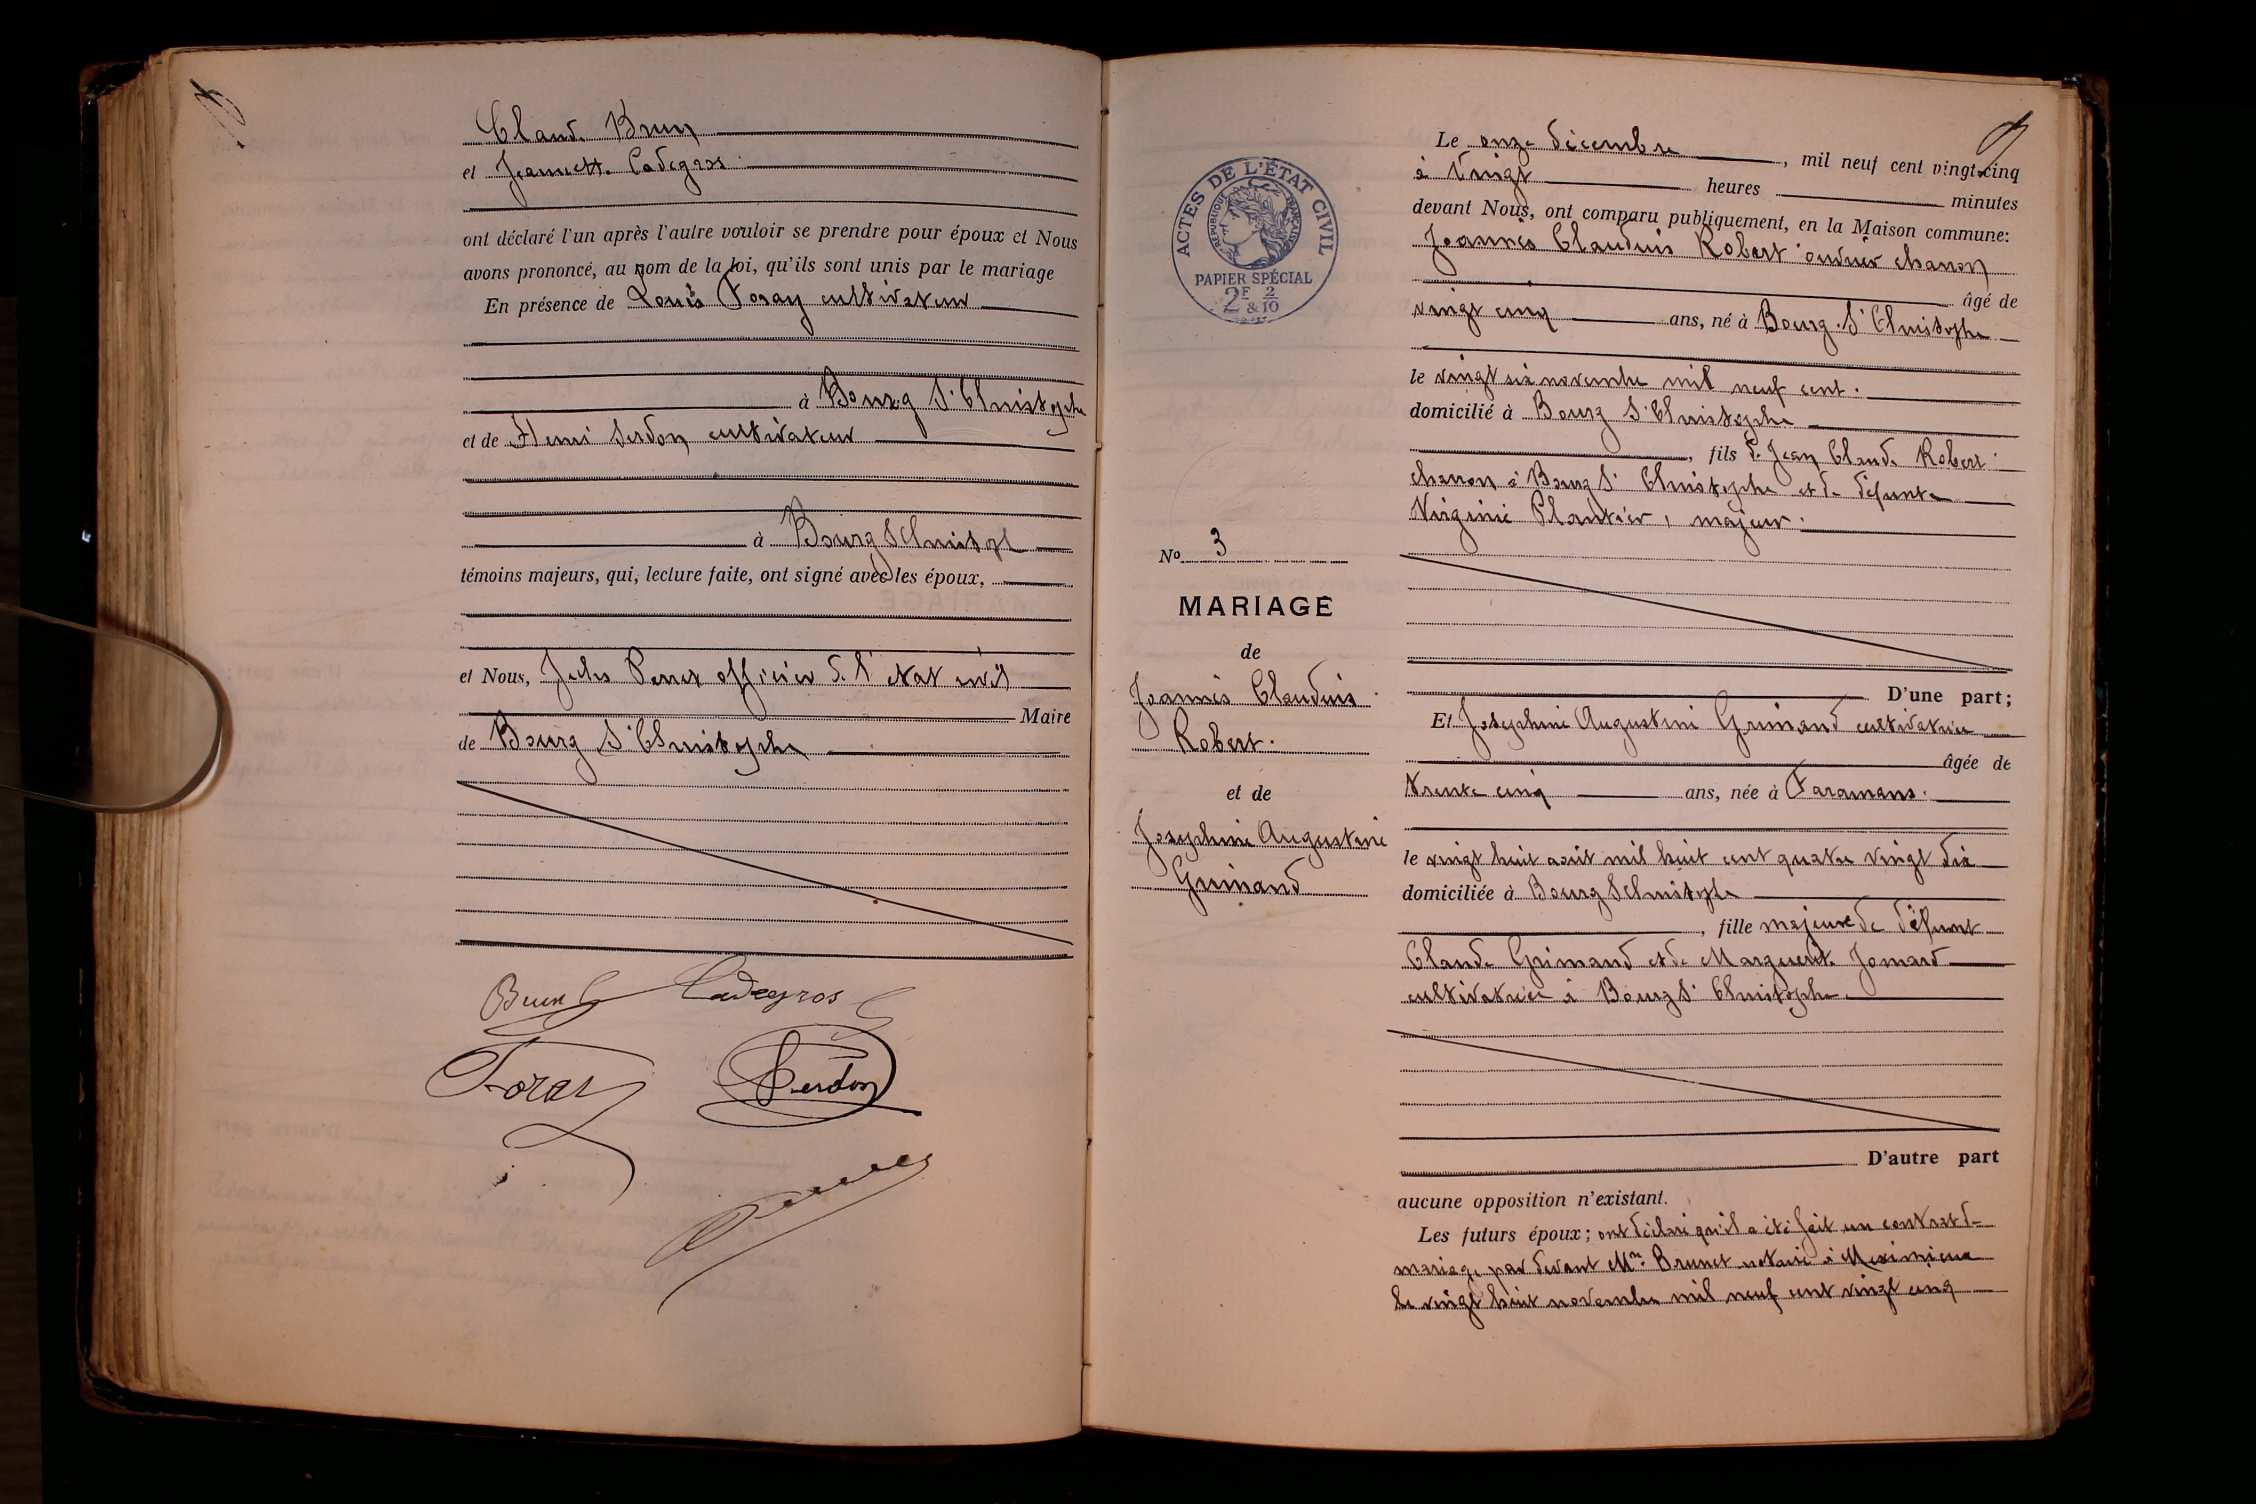 Claude Brun
et Jeannette Cadegros.
ont déclaré l'un après l'autre vouloir se prendre pour époux et Nous
avons prononcé, au nom de la loi, qu'ils sont unis par le mariage
En présence de Louis Foray cultivateur
à Bourg St Christophe
et de Henri Serdon cultivateur
à Bourg St Christophe
témoins majeurs, qui, lecture faite, ont signé avec les époux,
et Nous, Jules Perret officier de l'état civil
Maire
de Bourg St Christophe
Brun C Cadegros
Foray Serdon
ACTES DE L'ÉTAT CIVIL
RÉPUBLIQUE FRANÇAISE
PAPIER SPÉCIAL
2F & 2/10
No 3
MARIAGE
de
Joannès Claudius
Robert.
et de
Joséphine Augustine
Grimand
Le onze décembre, mil neuf cent vingt-cinq
à vingt heures minutes
devant Nous, ont comparu publiquement, en la Maison commune:
Joannès Claudius Robert ouvrier charron
âgé de
vingt cinq ans, né à Bourg-St Christophe
le vingt six novembre mil neuf cent.
domicilié à Bourg St Christophe
, fils de Jean Claude Robert
charron à Bourg St Christophe et de défunte
Virginie Plantier, majeur.
D'une part;
Et Joséphine Augustine Grimand cultivatrice
âgée de
trente cinq ans, née à Faramans.
le vingt huit août mil huit cent quatre vingt dix
domiciliée à Bourg St Christophe
, fille majeure de défunt
Claude Grimand et de Marguerite Jomard
cultivatrice à Bourg St Christophe.
D'autre part
aucune opposition n'existant.
Les futurs époux; ont déclaré qu'il a été fait un contrat de
mariage par devant Me Brunet notaire à Meximieux
le vingt huit novembre mil neuf cent vingt cinq